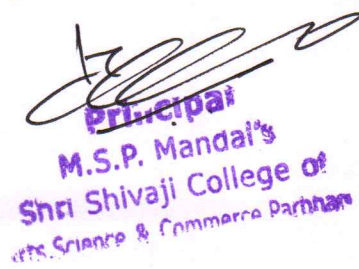 Principal
M.S.P. Mandal's
Shri Shivaji College of
Arts, Science & Commerce Parbhani